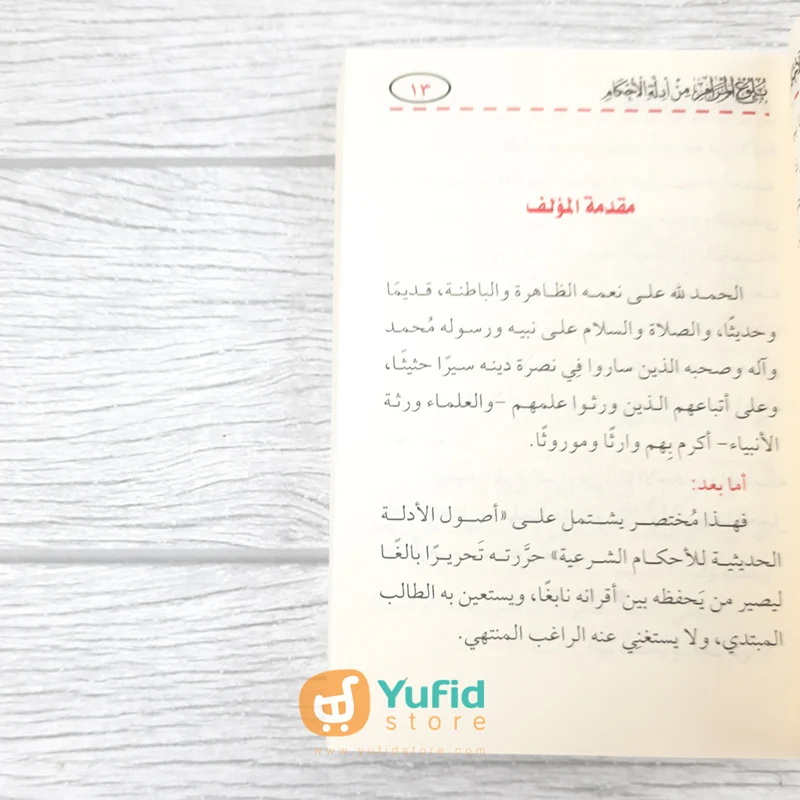 بلوغ المرام من أدلة الأحكام
١٣
مقدمة المؤلف
الحمد لله على نعمه الظاهرة والباطنة، قديمًا
وحديثًا، والصلاة والسلام على نبيه ورسوله مُحمد
وآله وصحبه الذين ساروا فِي نصرة دينه سيرًا حثيثًا،
وعلى أتباعهم الذين ورثوا علمهم -والعلماء ورثة
الأنبياء- أكرم بِهم وارثًا وموروثًا.
أما بعد:
فهذا مُختصر يشتمل على «أصول الأدلة
الحديثية للأحكام الشرعية» حرَّرته تَحريرًا بالغًا
ليصير من يَحفظه بين أقرانه نابغًا، ويستعين به الطالب
المبتدي، ولا يستغنِي عنه الراغب المنتهي.
Yufid
store
www.yufidstore.com